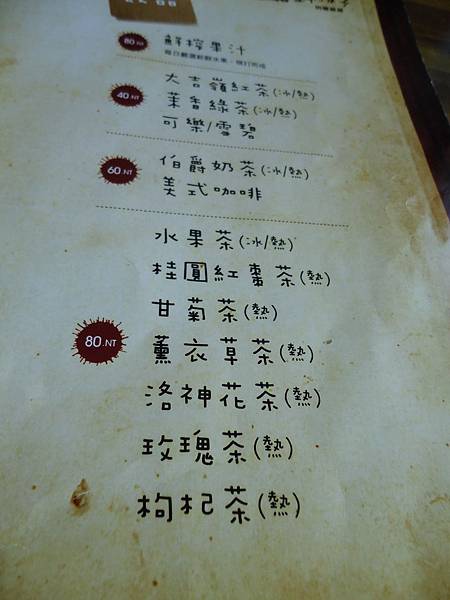 80.NT
鮮榨果汁
每日嚴選新鮮水果，現打而成
40.NT
大吉嶺紅茶(冰/熱)
茉香綠茶(冰/熱)
可樂/雪碧
60.NT
伯爵奶茶(冰/熱)
美式咖啡
80.NT
水果茶(冰/熱)
桂圓紅棗茶(熱)
甘菊茶(熱)
薰衣草茶(熱)
洛神花茶(熱)
玫瑰茶(熱)
枸杞茶(熱)